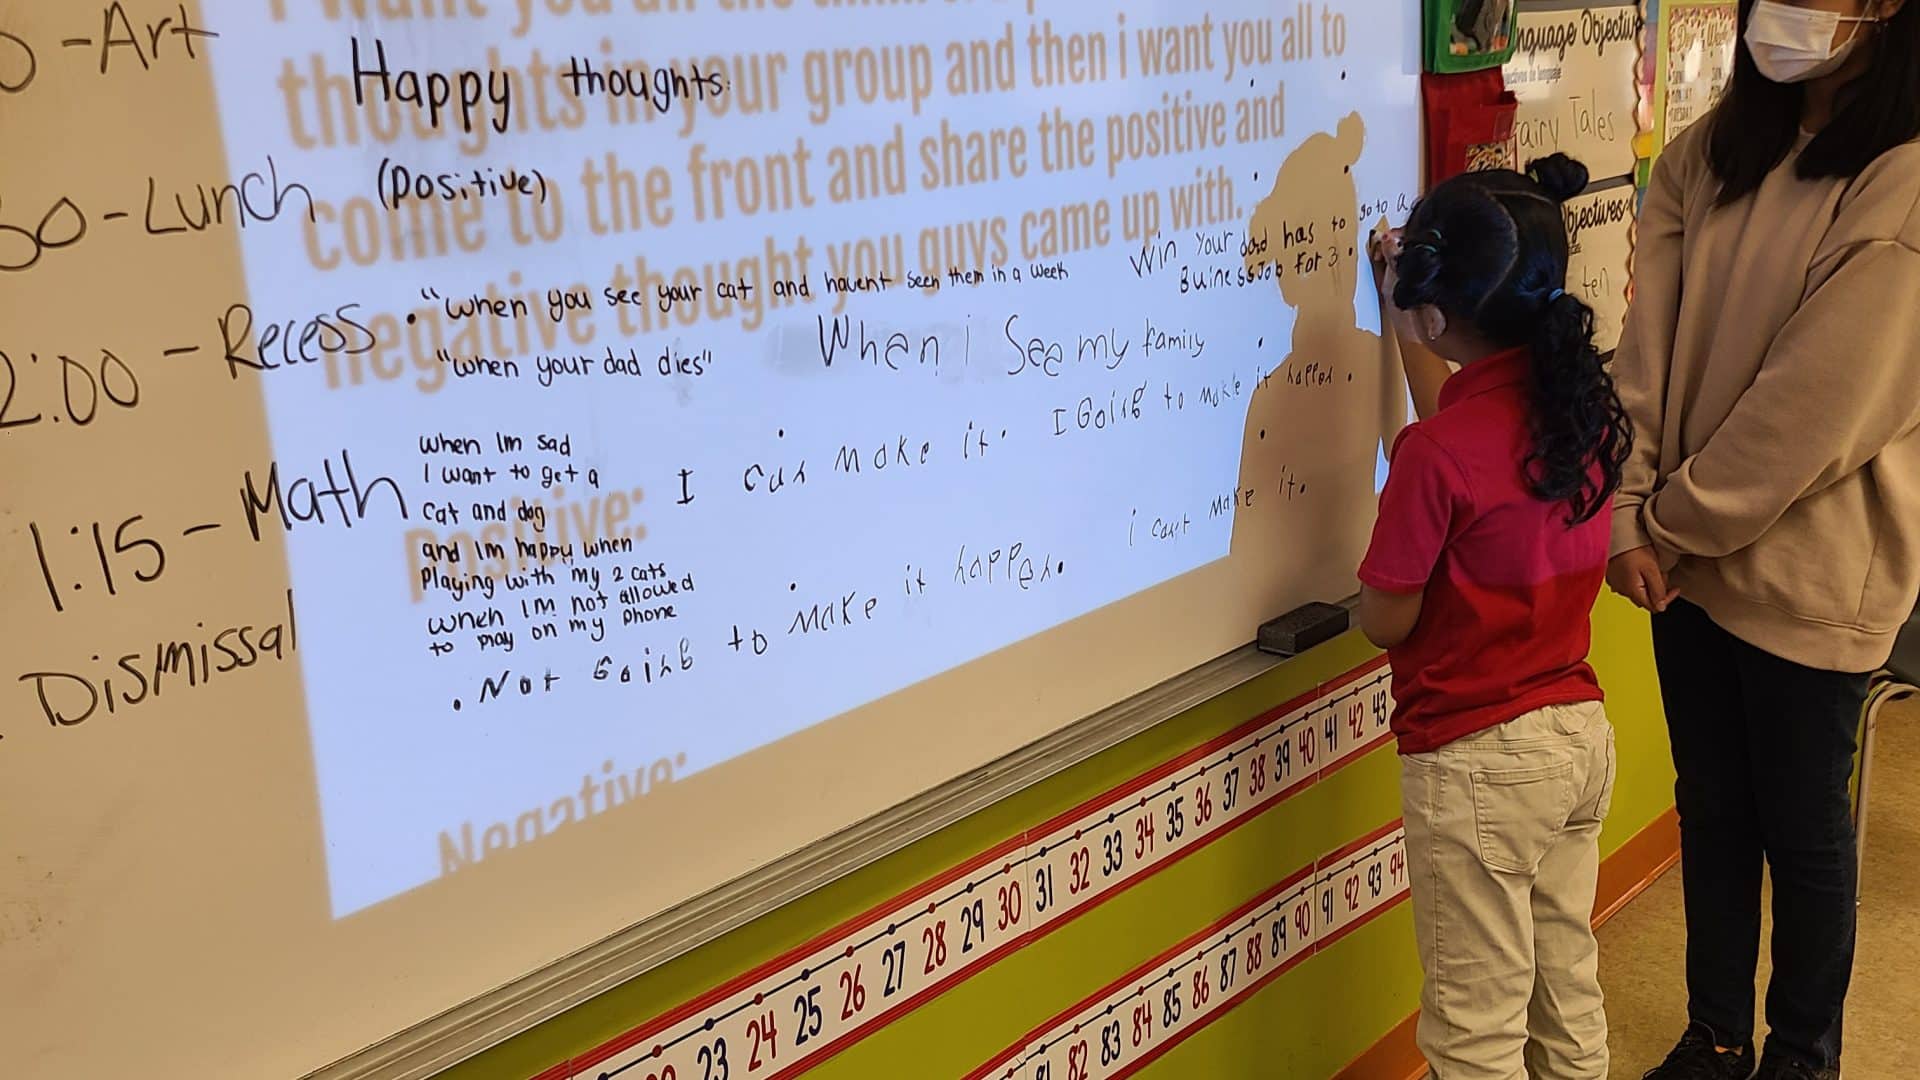 0 -Art
30 -Lunch
2:00 - Recess
1:15 - Math
Dismissal
thoughts in your group and then i want you all to
come to the front and share the positive and
negative thought you guys came up with.
Positive:
Negative:
Happy thoughts:
(Positive)
"when you see your cat and havent seen them in a week
"when your dad dies"
Win your dad has to go to a
BuinessJob for 3
When i See my family
when Im sad
I want to get a
cat and dog
and Im happy when
Playing with my 2 cats
when Im not allowed
to play on my phone
I can make it. I Going to make it happen.
. Not Going to make it happen. i cant make it.
nguage Objective
Fairy Tales
bjectives
ten
SUN
MONDAY
TUESDAY
23 24 25 26 27 28 29 30 31 32 33 34 35 36 37 38 39 40 41 42 43
81 82 83 84 85 86 87 88 89 90 91 92 93 94